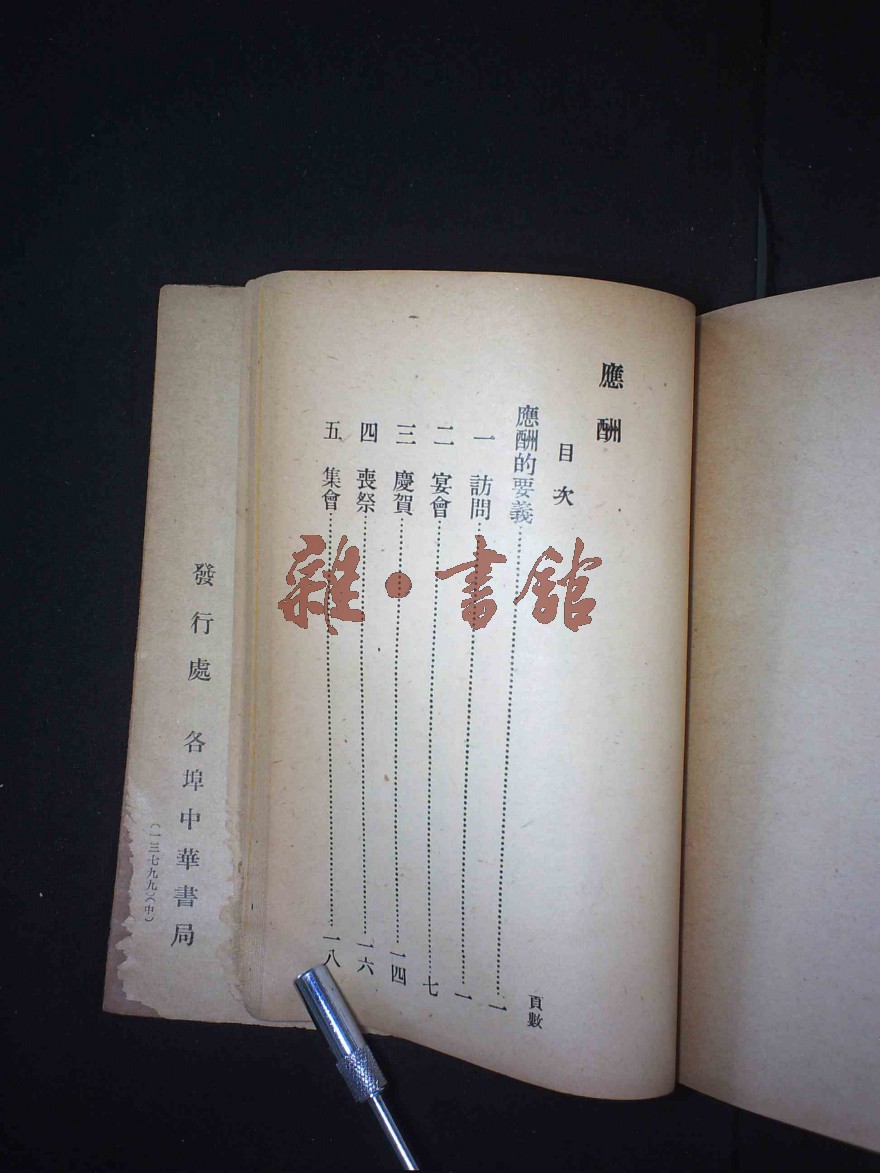 應酬
目次
頁數
應酬的要義…一
一 訪問…一
二 宴會…七
三 慶賀…一四
四 喪祭…一六
五 集會…一八
雜·書館
發行處 各埠中華書局
(一三七九九)(中)